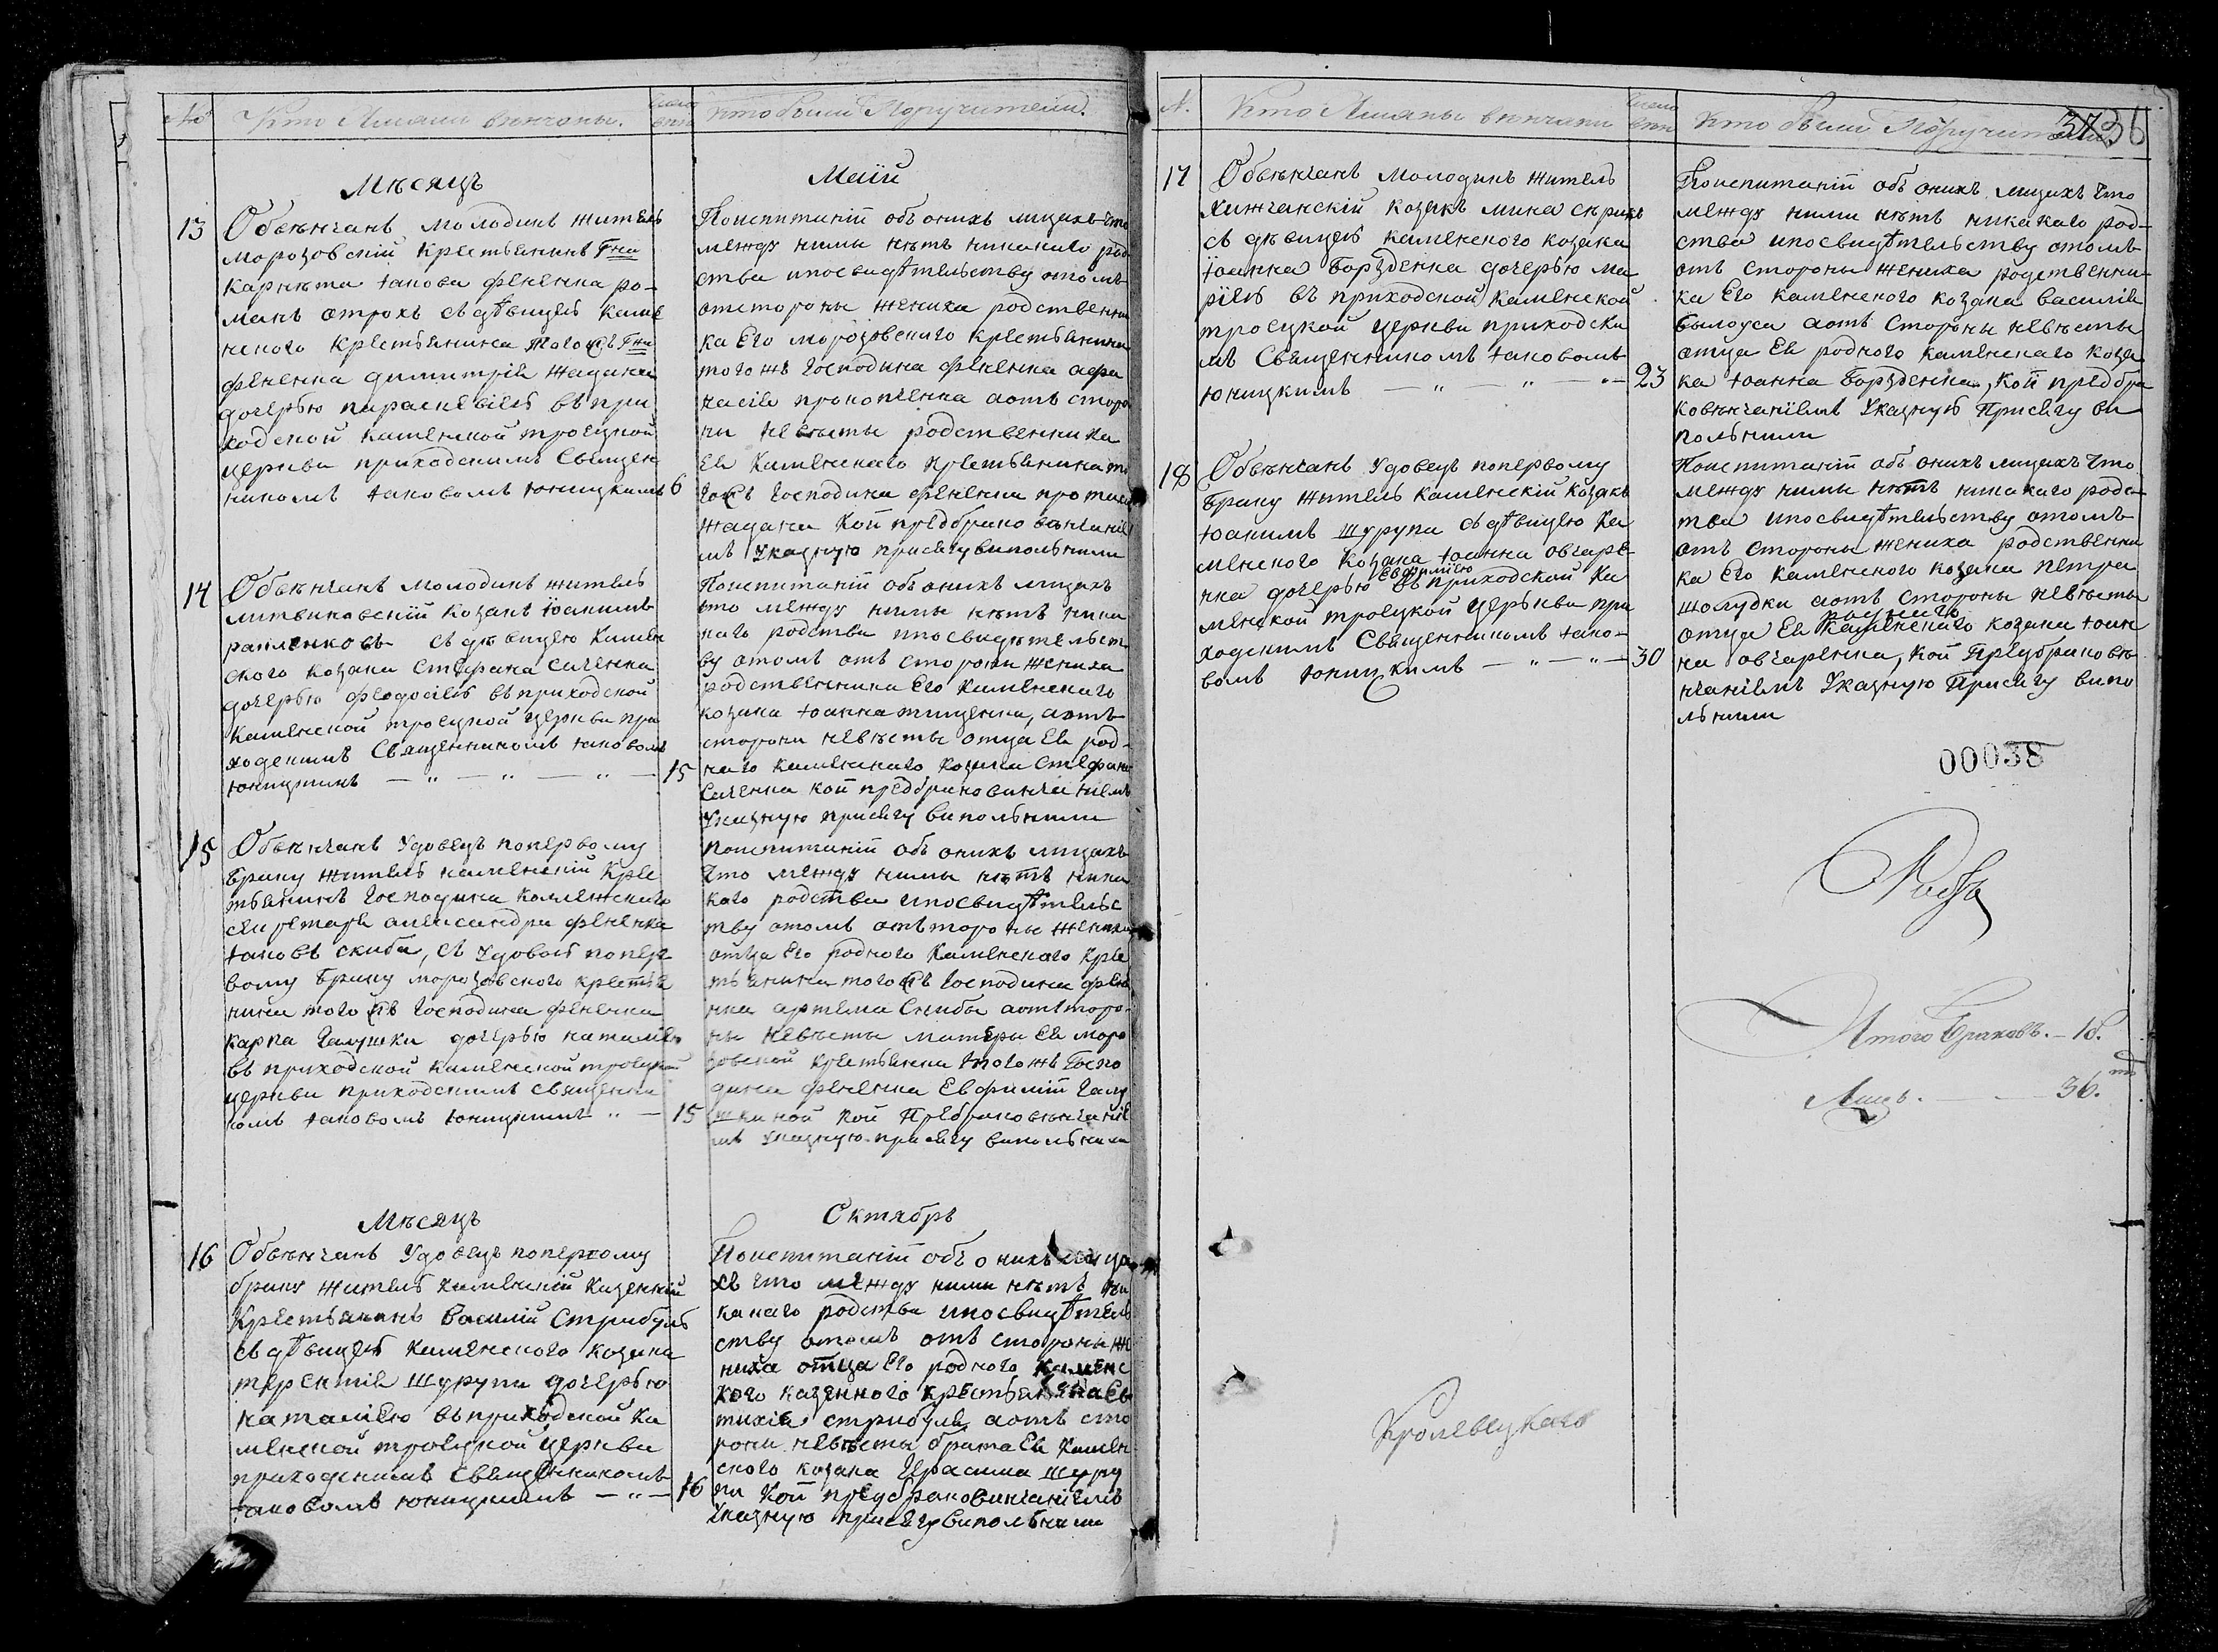 № Кто Имяны венчаны. Число вен кто были Поручители.
Мѣсяцъ Маій
13 Обвѣнчанъ молодикъ житель
морозовскій крестьянинъ Гна
карнѣта іакова фененка ро-
манъ отрохъ съ дѣвицей каме
нского крестьянина того жъ Гна
фененка димитрія жадана
дочерью параскевіей въ при
ходской каменской троецкой
церкви приходскимъ священ
никомъ іаковомъ юницкимъ 6
Поиспитаніи объ онихъ лицахъ что
между ними нѣтъ никакого род
ства ипосвидѣтельству отомъ
отстороны жениха родственни
ка Его морозовского крестьянина
того жъ господина фененка афа
насія прокопенка аотъ сторо
ни невѣсты родственника
Ея каменскаго крестьянина то
гожъ господина фененка
жадана кой предбрако вѣнчаніе
мъ указную присягу випольнили
14 Обвѣнчанъ молодикъ житель
литвиновскій козакъ іоакимъ
съ дѣвицею камен
ского козака стефана саченка
дочерью феодосіей въ приходской
каменской троецкой церкви при
ходскимъ Священникомъ іаковомъ
юницкимъ — " — " — " — 15
Поиспитаніи объ онихъ лицахъ
что между нимы нѣтъ ника
каго родства ипосвидѣтельст
ву отомъ отъ сторони жениха
родственника Его каменскаго
козака іоанна тищенка, аотъ
сторони невѣсты отца Ея род-
наго каменскаго козака стефана
саченка кой предбрако винчаніемъ
указную присягу випольнили
15 Обвѣнчанъ Удовецъ поперВому
браку житель каменскій кре
стьянинъ господина коллежскаго
секретаря александра фененка
іаковъ скиба, съ удовой попер
вому браку морозовского крестья
нина того жъ господина фененка
карпа галушки дочерью наталіею
въ приходской каменской троецкой
церкви приходскимъ священни
комъ іаковомъ юницкимъ " — 15
поиспитаніи объ онихъ лицахъ
что между нимы нѣтъ ника
каго родства ипосвидѣтельс
тву отомъ отъ стороны жениха
отца Его родного каменскаго кре
стьянина того жъ господина фене
нка артема Скибы аотъ сторо-
ны невѣсты матери Ея моро
зовской крестьянки того жъ госпо
дина фененка Евфиміи галу
шкиной кой предбрако вѣнчаніе
мъ указную присягу випольнили
Мѣсяцъ Октябрь
16 Обвѣнчанъ Удовецъ поперВому
браку житель каменскій Казенній
Крестьянинъ Василій Стрибуль
съ дѣвицей каменского козака
терентія Шурупи дочерью
наталіею въ приходской ка
менской троецкой церкви
приходскимъ священникомъ
іаковомъ юницкимъ — " — 16
Поиспитаніи объ онихъ лица
хъ что между ними нѣтъ ни
какаго родства ипосвидѣтель
ству отомъ отъ стороны же
ниха отца Его родного каменс
кого казенного крестьянина Ев
тихія стрибуля аотъ сто
рони невѣсты брата Ея камен
ского козака Герасима Шуру
пи кой предбрако винчаніемъ
указную присягу випольнили
N. Кто Имяны венчаны Число вен кто были Поручители 37 36
17 Обвѣнчанъ Молодикъ житель
хижчанскій козакъ мина сѣрикъ
съ дѣвицей каменского козака
іоанна борзденка дочерью ма
ріей въ приходской каменской
троецкой церкви приходски
мъ Священникомъ іаковомъ
юницкимъ — " — " — " — 23
Поиспитаніи объ онихъ лицахъ что
между ними нѣтъ никакаго род-
ства ипосвидѣтельству отомъ
отъ стороны жениха родственни-
ка Его каменского козака василія
былоуса аотъ Стороны невѣсты
отца Ея родного каменскаго коза
ка іоанна борзденка, кой предбра
ковѣнчаніемъ Указную Присягу ви
польнили
18 Обвѣнчанъ Удовецъ попервому
браку житель каменскій козакъ
іоакимъ шурупа съ дѣвицею ка
менского козака іоанна овчаре-
нка дочерью Евфиміею въ приходской ка
менской троецкой церькви при
ходскимъ Священникомъ іако-
вомъ юницкимъ — " — " — 30
Поиспитаніи объ онихъ лицахъ что
между нимы нѣтъ никакаго родс-
тва ипосвидѣтельству отомъ
отъ стороны жениха родственни
ка Его каменского козака петра
шолудки аотъ стороны невѣсты
отца Ея роднаго каменскаго козака іоан
на овчаренка, кой Предбрако вѣ
нчаніемъ Указную Присягу випо
льнили
00038
Итого браковъ. — 18.
Лицъ. — 36.
Кролевецкаго